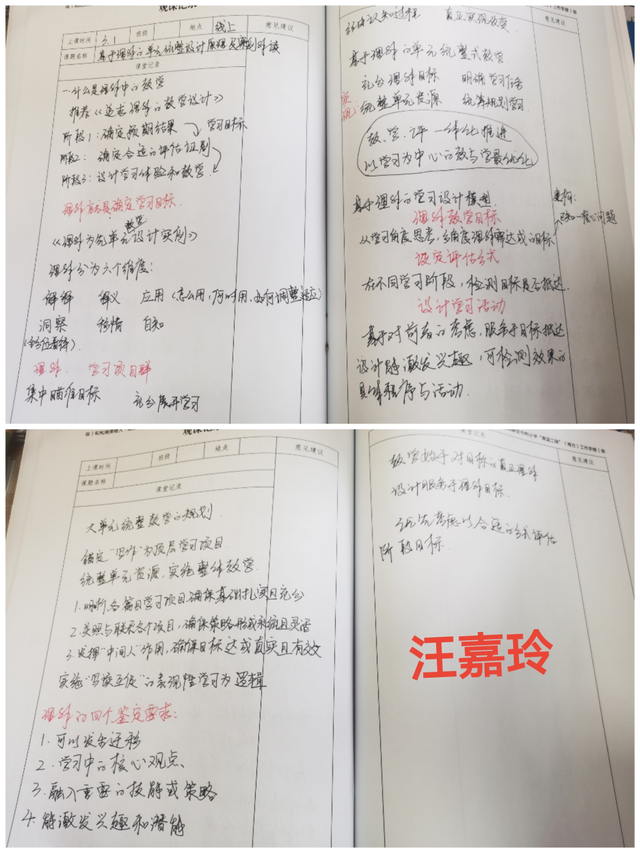 观课记录
上课时间 3.1 班级 地点 线上 意见建议
课题名称 基于理解的单元统整设计原理及案例解读
课堂记录
一.什么是理解中的教学
推荐《追求理解的教学设计》
阶段1:确定预期结果 学习目标
阶段2:确定合适的评估证据
阶段3:设计学习体验和教学
理解首先是确定学习目标.
《理解为先单元教学设计实例》
理解分为六个维度:
解释 释义 应用(怎么用,何时用,如何调整适应)
洞察 移情 自知
理解. 学习项目群
集中瞄准目标 充分展开学习
意见建议
基于理解的单元统整式教学
充分理解目标 明确学习任务
统整单元资源 统筹规划学习
教、学、评一体化推进
以学习为中心的教与学最优化
基于理解的学习设计模型
理解教学目标
从学习角度思考,多角度理解达成的目标
设定评估方式
在不同学习阶段,检测目标是否抵达.
设计学习活动
基于对前面的考虑,服务于目标抵达
设计能激发兴趣,可检测效果的
具体程序与活动.
观课记录
上课时间 班级 地点 意见建议
课题名称
课堂记录
大单元统整教学的规划
锚定"写作"为顶层学习项目
统整单元资源,实施整体教学
1.明晰各篇目学习项目,确保基础扎实且充分
2.关照与联系各个项目,确保策略形成系统且灵活
3.发挥"中间人"作用,确保目标达成真实且有效
实施"写读互促"的表现性学习为逻辑
理解的四个鉴定要素:
1.可以发生迁移
2.学习中的核心观点、
3.融入重要的技能或策略
4.能激发兴趣和潜能
课堂记录 意见建议
教学始于对目标的真正理解
设计服务于理解目标.
优先考虑以合适的方式评估
阶段目标.
汪嘉玲